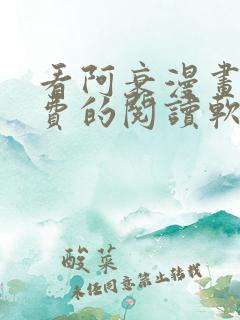 看阿衰漫畫
費的閱讀軟
酸菜
未經同意禁止轉載